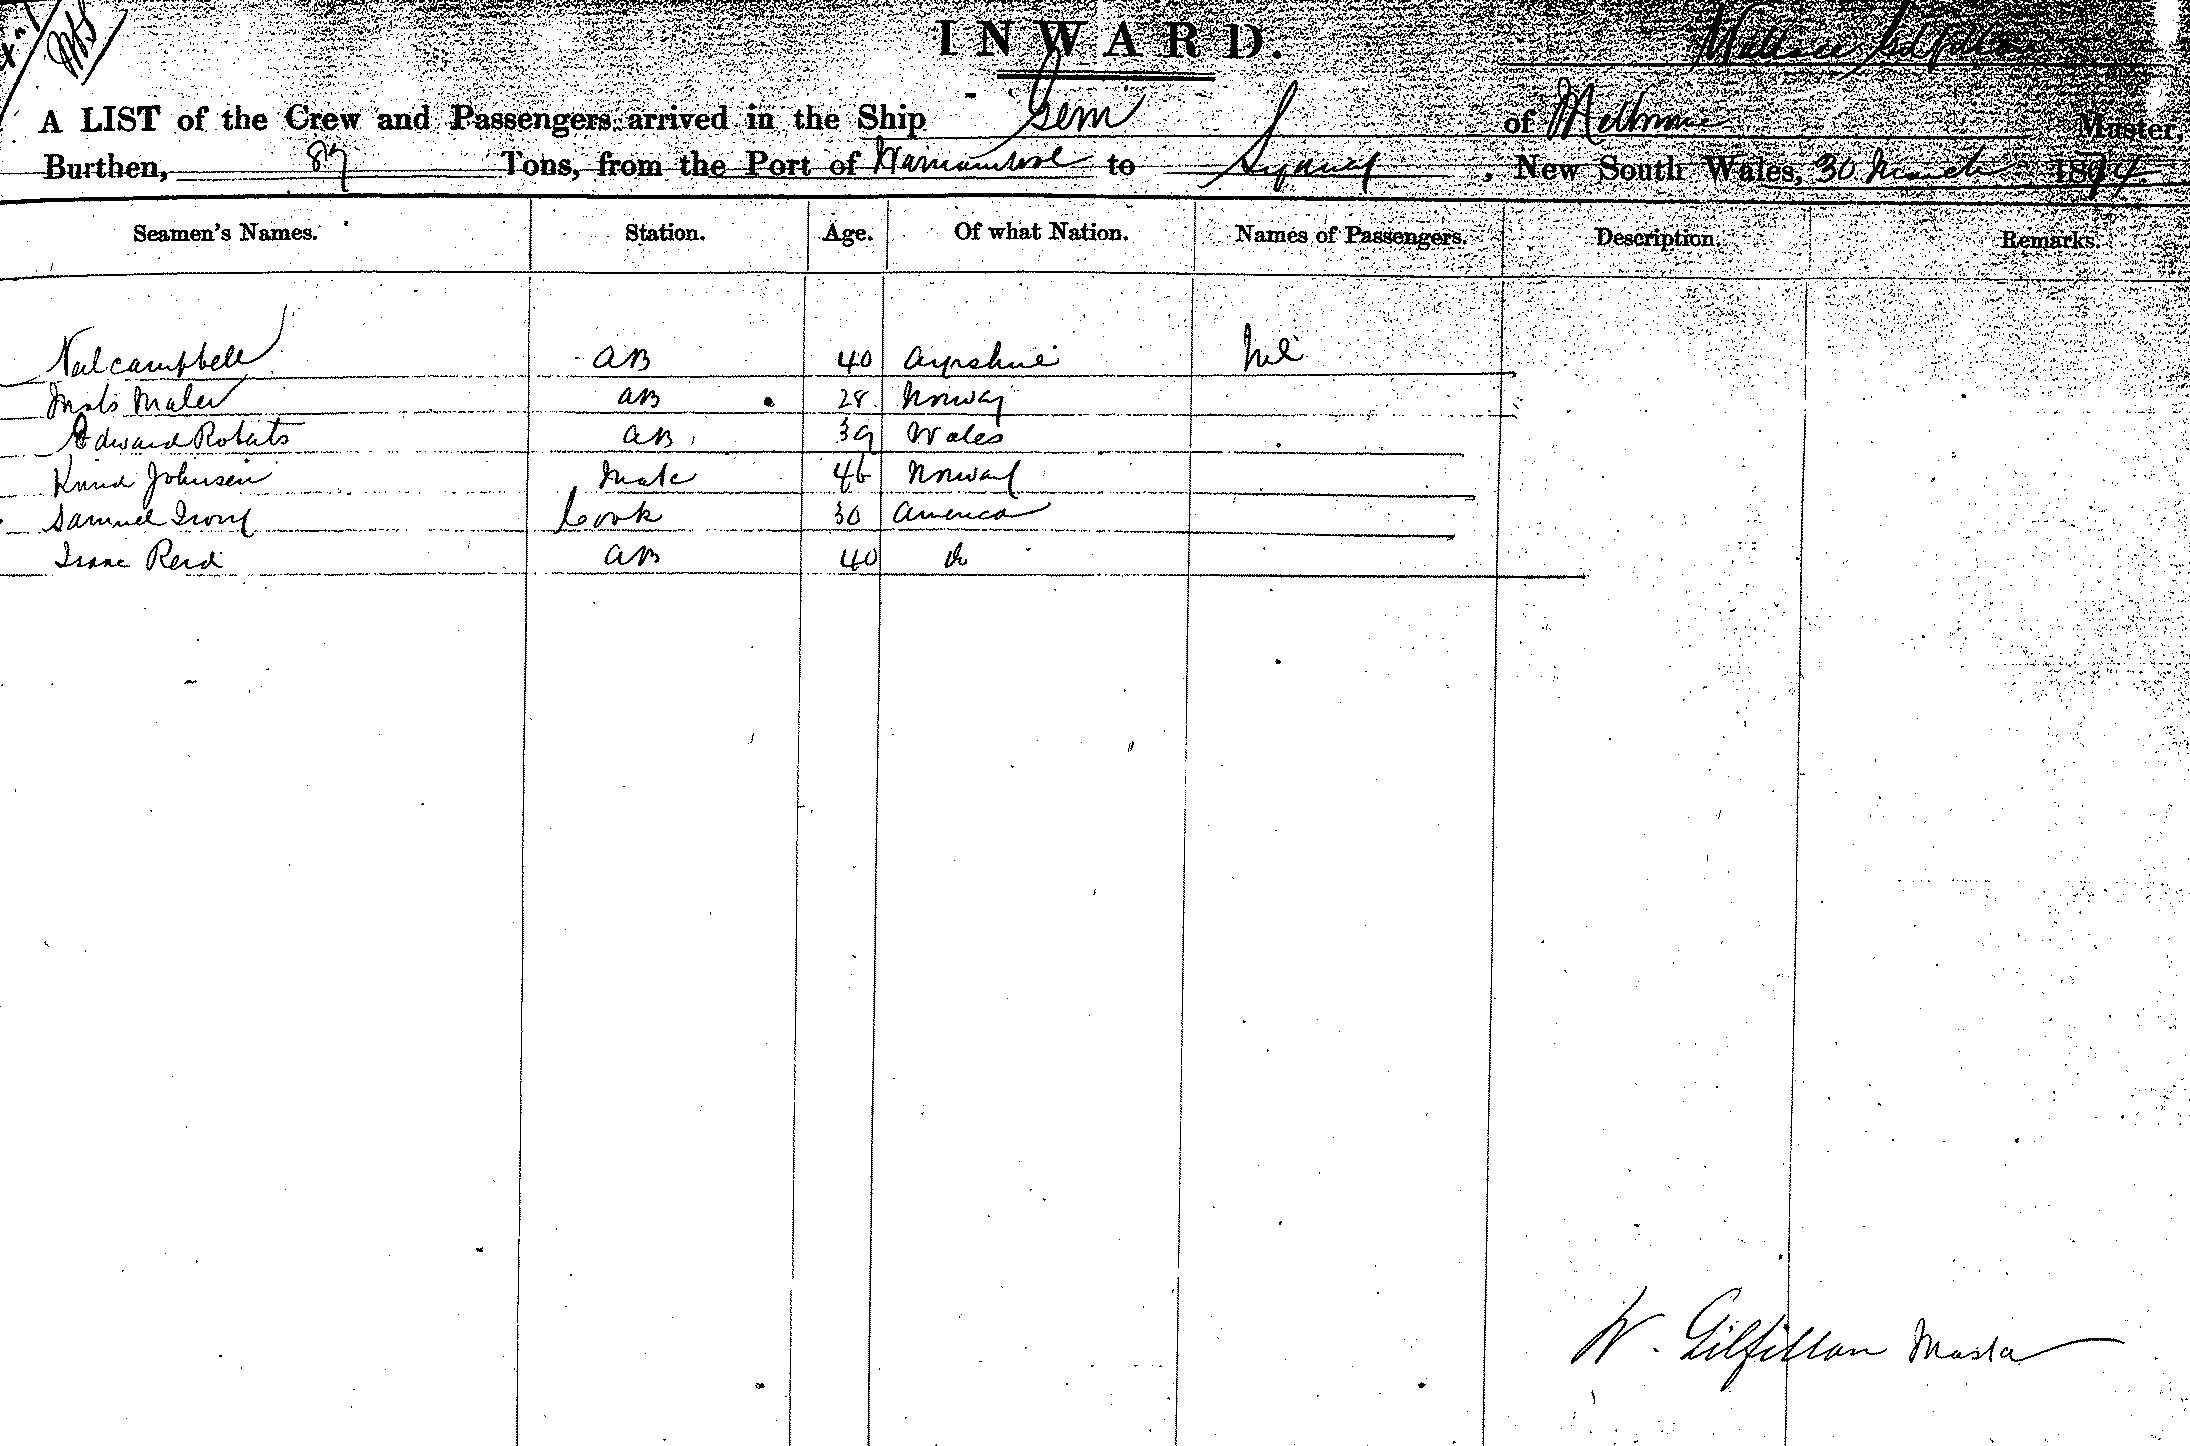 INWARD.
Wallace Gilfillan
A LIST of the Crew and Passengers arrived in the Ship Gem of Melbourne Master,
Burthen, 89 Tons, from the Port of Warrnambool to Sydney, New South Wales, 30 March 1894
Seamen's Names. Station. Age. Of what Nation. Names of Passengers. Description. Remarks.
Neil campbell AB 40 Ayrshire Nil
Mats Maler AB 28 Norway
Edward Robats AB 39 Wales
Knud Johnsen Mate 46 Norway
Samuel Cook 30 America
Isaac Reid AB 40 do
W. Gilfillan Master